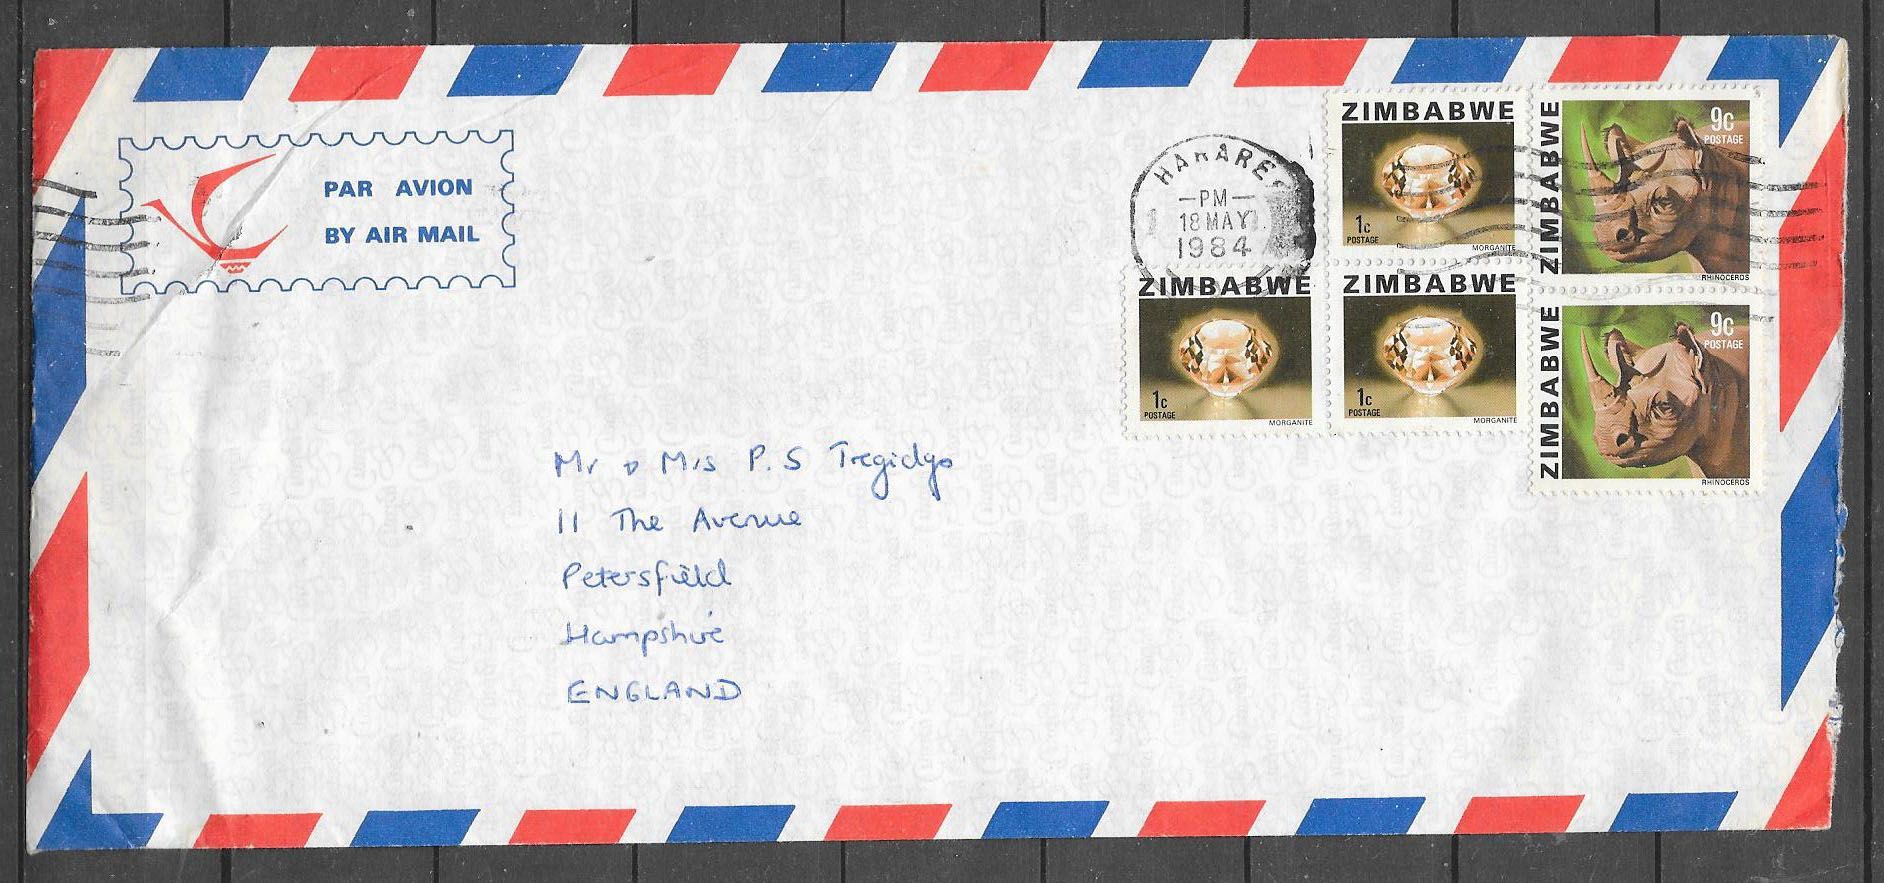 PAR AVION
BY AIR MAIL
HARARE
PM
18 MAY
1984
ZIMBABWE
1c
POSTAGE
MORGANITE
ZIMBABWE
9c
POSTAGE
RHINOCEROS
ZIMBABWE
1c
POSTAGE
MORGANITE
ZIMBABWE
1c
POSTAGE
MORGANITE
ZIMBABWE
9c
POSTAGE
RHINOCEROS
Mr & Mrs P. S Tregidgo
11 The Avenue
Petersfield
Hampshire
ENGLAND